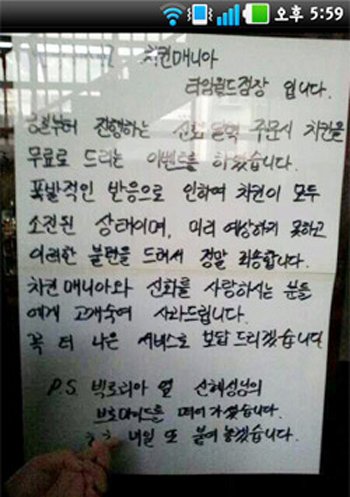 오후 5:59
치킨매니아
타임월드점장 입니다.
금일부터 진행하는 신화 달력 주문시 치킨을
무료로 드리는 이벤트를 하였습니다.
폭발적인 반응으로 인하여 치킨이 모두
소진된 상태이며, 미리 예상하지 못하고
이러한 불편을 드려서 정말 죄송합니다.
치킨매니아와 신화를 사랑하시는 분들
에게 고개숙여 사과드립니다.
꼭 더 나은 서비스로 보답 드리겠습니다
P.S. 빅토리아 옆 신혜성님의
브로마이드를 떼어가셨습니다.
내일 또 붙여 놓겠습니다.